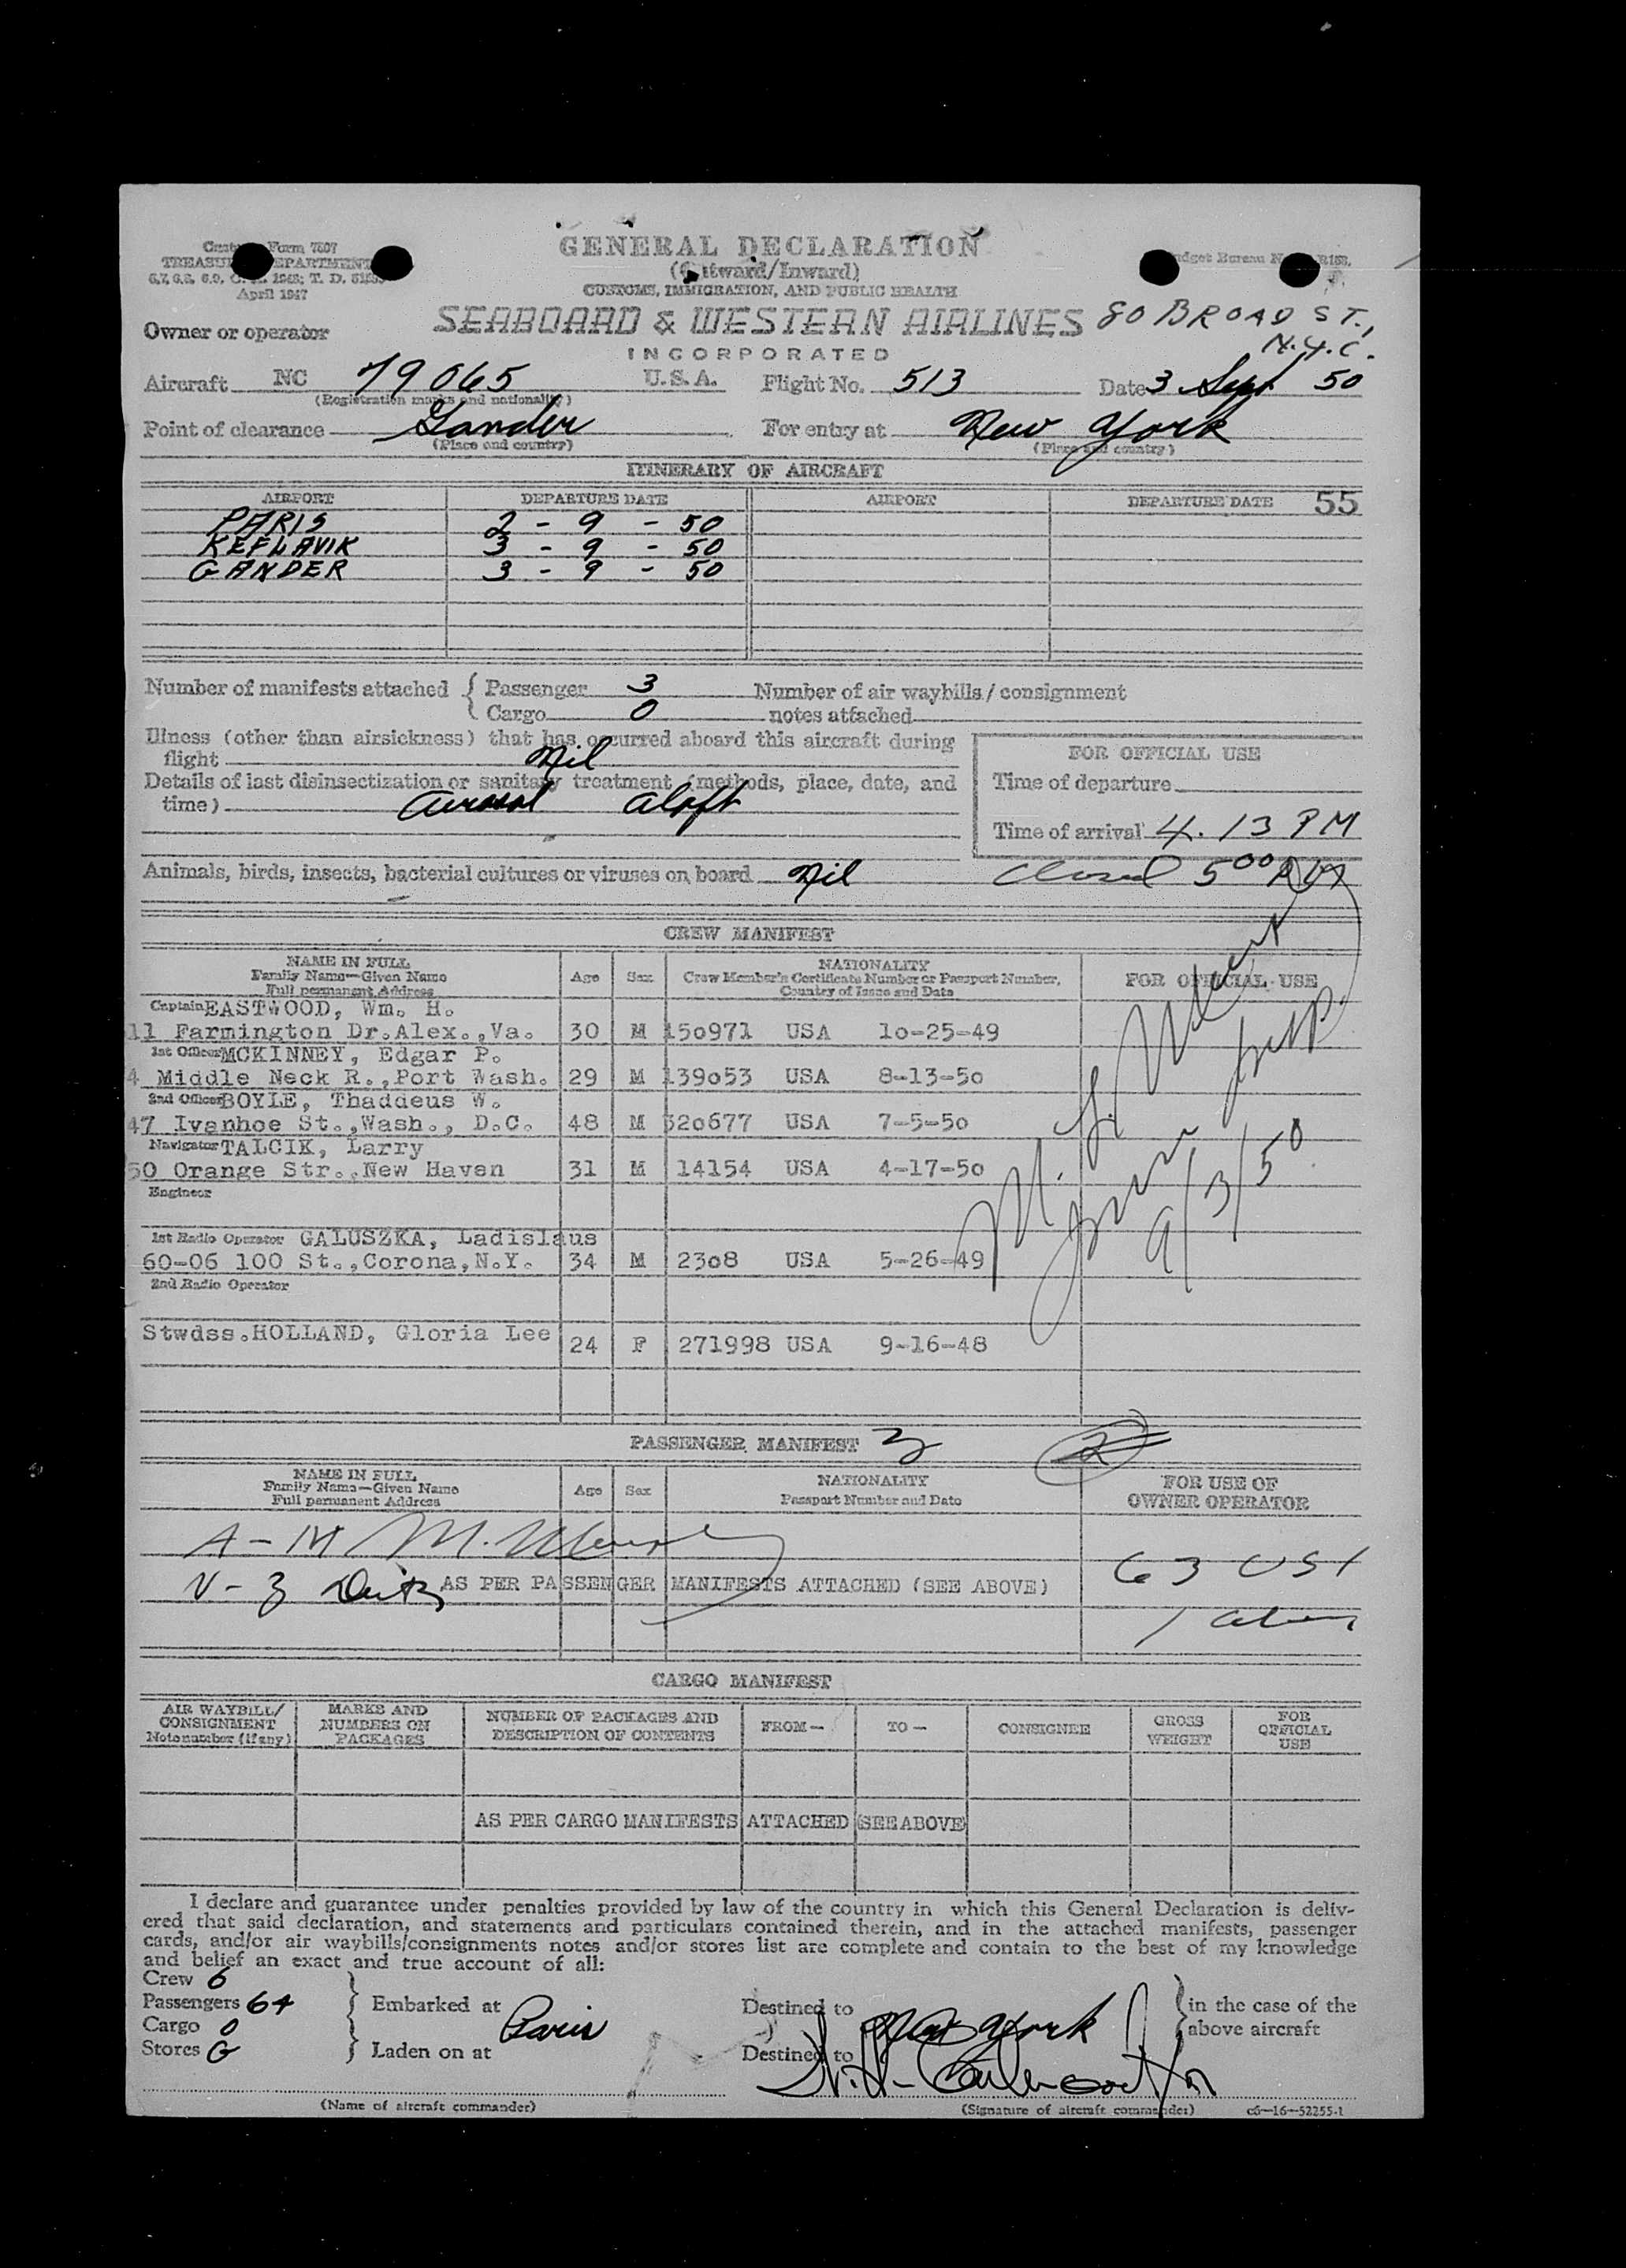 Form 7507
GENERAL DECLARATION
(Outward/Inward)
CUSTOMS, IMMIGRATION, AND PUBLIC HEALTH
April 1947
Owner or operator SEABOARD & WESTERN AIRLINES 80 BROAD ST.,
INCORPORATED N.Y.C.
Aircraft NC 79065 U.S.A. Flight No. 513 Date 3 Sept 50
(Registration marks and nationality)
Point of clearance Gander For entry at New York
(Place and country) (Place and country)
ITINERARY OF AIRCRAFT
AIRPORT DEPARTURE DATE AIRPORT DEPARTURE DATE 55
PARIS 2 - 9 - 50
KEFLAVIK 3 - 9 - 50
GANDER 3 - 9 - 50
Number of manifests attached { Passenger 3 Number of air waybills / consignment
Cargo 0 notes attached
Illness (other than airsickness) that has occurred aboard this aircraft during
flight Nil
FOR OFFICIAL USE
Details of last disinsectization or sanitary treatment (methods, place, date, and
time) Aerosol aloft
Time of departure
Time of arrival 4.13 PM
Animals, birds, insects, bacterial cultures or viruses on board Nil
Closed 5 00
CREW MANIFEST
NAME IN FULL
Family Name—Given Name
Full permanent Address
Age Sex
NATIONALITY
Crew Member's Certificate Number or Passport Number,
Country of Issue and Date
FOR OFFICIAL USE
Captain EASTWOOD, Wm. H.
11 Farmington Dr.Alex.,Va. 30 M 150971 USA 10-25-49
1st Officer MCKINNEY, Edgar P.
4 Middle Neck R.,Port Wash. 29 M 139053 USA 8-13-50
2nd Officer BOYLE, Thaddeus W.
47 Ivanhoe St.,Wash., D.C. 48 M 320677 USA 7-5-50
Navigator TALCIK, Larry
50 Orange Str.,New Haven 31 M 14154 USA 4-17-50
Engineer
1st Radio Operator GALUSZKA, Ladislaus
60-06 100 St.,Corona,N.Y. 34 M 2308 USA 5-26-49
2nd Radio Operator
Stwdss.HOLLAND, Gloria Lee
24 F 271998 USA 9-16-48
9/3/50
PASSENGER MANIFEST 3 2
NAME IN FULL
Family Name—Given Name
Full permanent Address
Age Sex
NATIONALITY
Passport Number and Date
FOR USE OF
OWNER OPERATOR
A - M M.
N - Z AS PER PASSENGER MANIFESTS ATTACHED (SEE ABOVE)
63
1
CARGO MANIFEST
AIR WAYBILL/
CONSIGNMENT
Note number (if any)
MARKS AND
NUMBERS ON
PACKAGES
NUMBER OF PACKAGES AND
DESCRIPTION OF CONTENTS
FROM— TO— CONSIGNEE
GROSS
WEIGHT
FOR
OFFICIAL
USE
AS PER CARGO MANIFESTS ATTACHED (SEE ABOVE
I declare and guarantee under penalties provided by law of the country in which this General Declaration is deliv-
ered that said declaration, and statements and particulars contained therein, and in the attached manifests, passenger
cards, and/or air waybills/consignments notes and/or stores list are complete and contain to the best of my knowledge
and belief an exact and true account of all:
Crew 6
Passengers 64 } Embarked at Paris Destined to New York } in the case of the
Cargo 0 above aircraft
Stores } Laden on at Destined to
(Name of aircraft commander) (Signature of aircraft commander) c6—16—52255-1